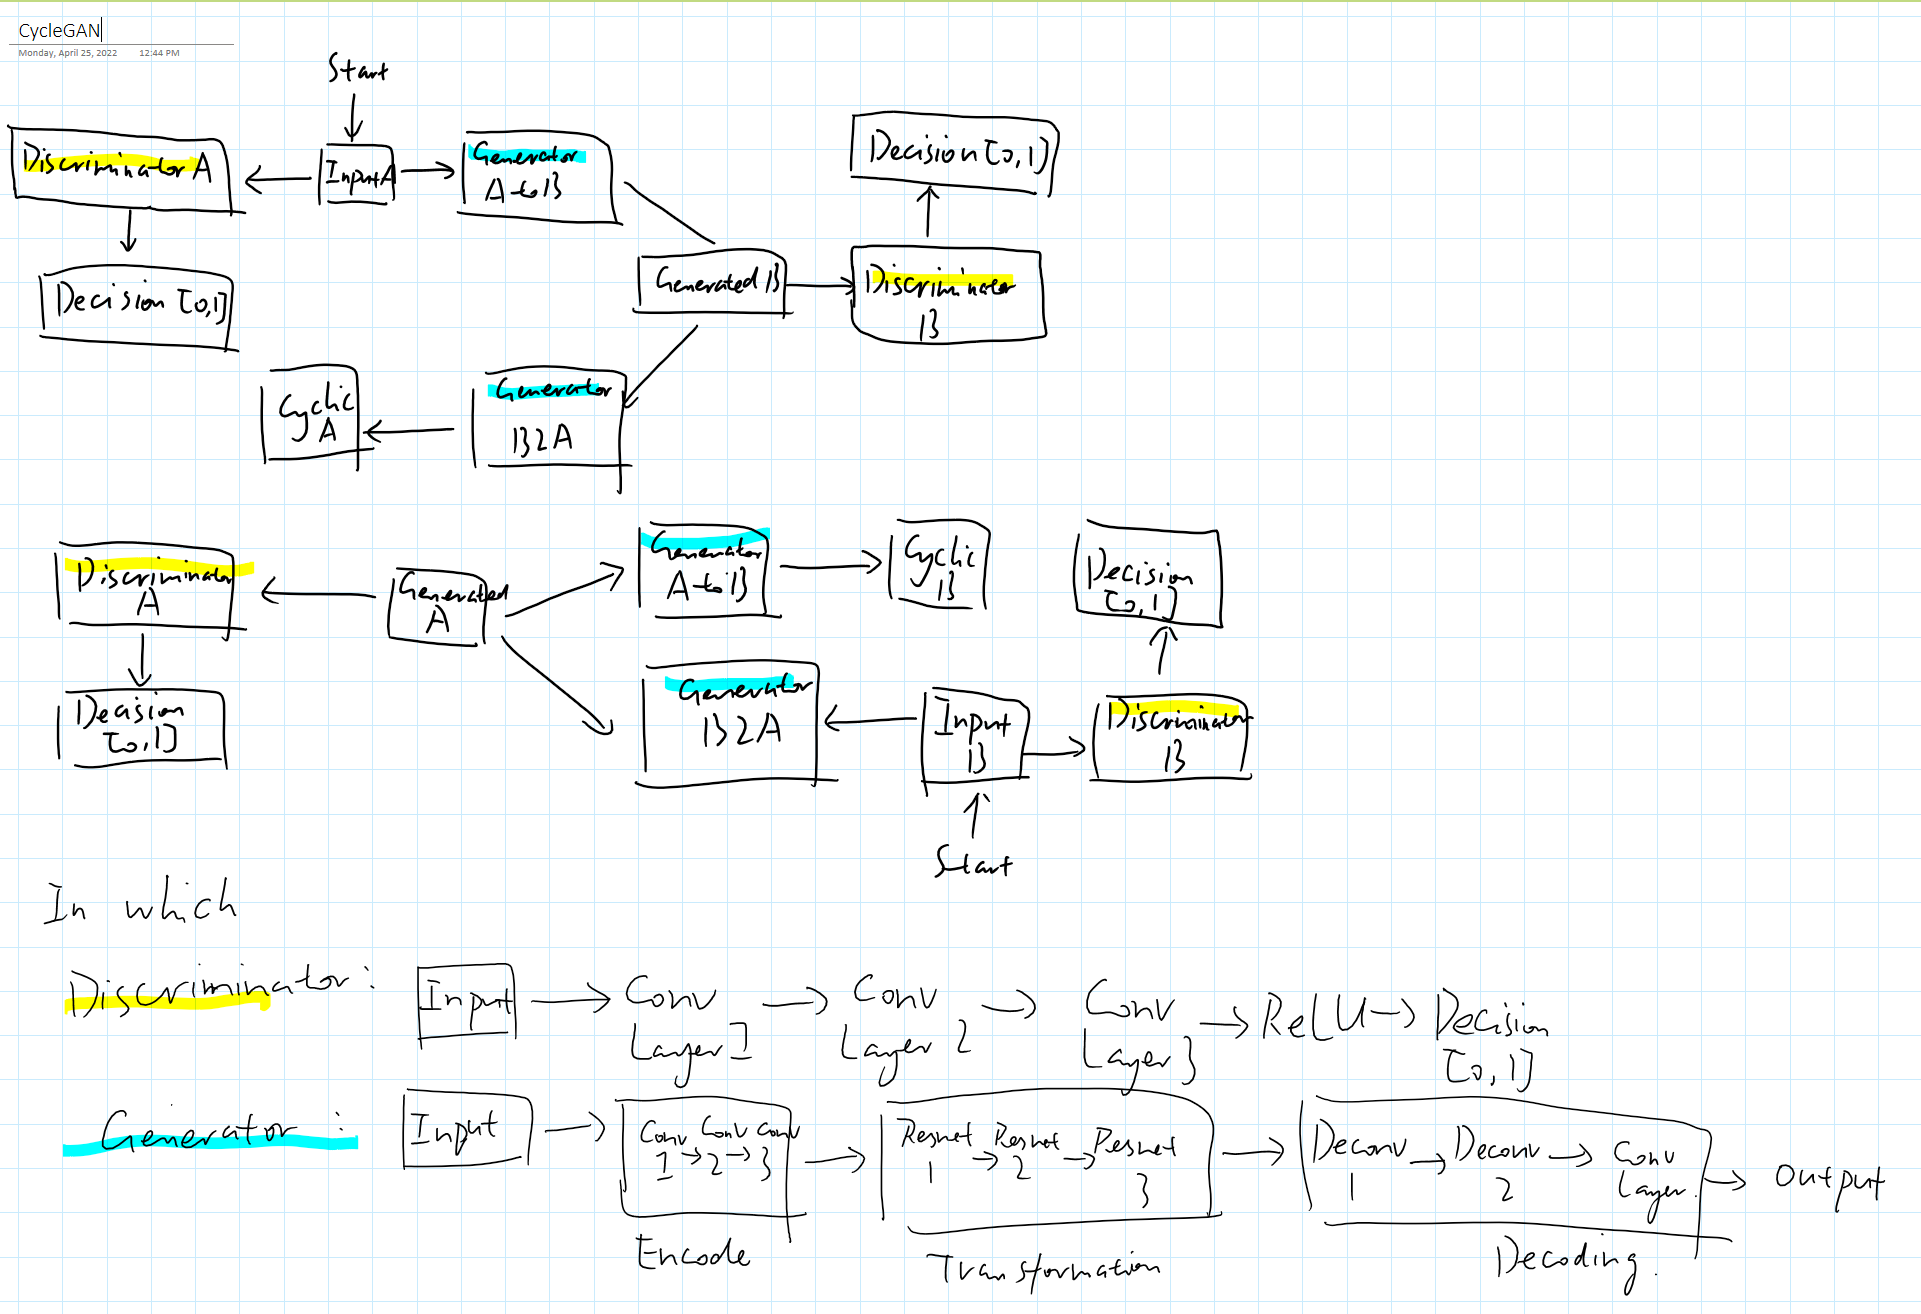 CycleGAN
Monday, April 25, 2022 12:44 PM
Start
Discriminator A
Input A
Generator
A to B
Decision [0,1]
Decision [0,1]
Generated B
Discriminator
B
Cyclic
A
Generator
B2A
Discriminator
A
Generated
A
Generator
A to B
Cyclic
B
Decision
[0,1]
Decision
[0,1]
Generator
B2A
Input
B
Discriminator
B
Start
In which
Discriminator:
Input
Conv
Layer 1
Conv
Layer 2
Conv
Layer 3
ReLU
Decision
[0,1]
Generator:
Input
Conv
1
Conv
2
Conv
3
Encode
Resnet
1
Resnet
2
Resnet
3
Transformation
Deconv
1
Deconv
2
Conv
Layer.
Decoding.
Output